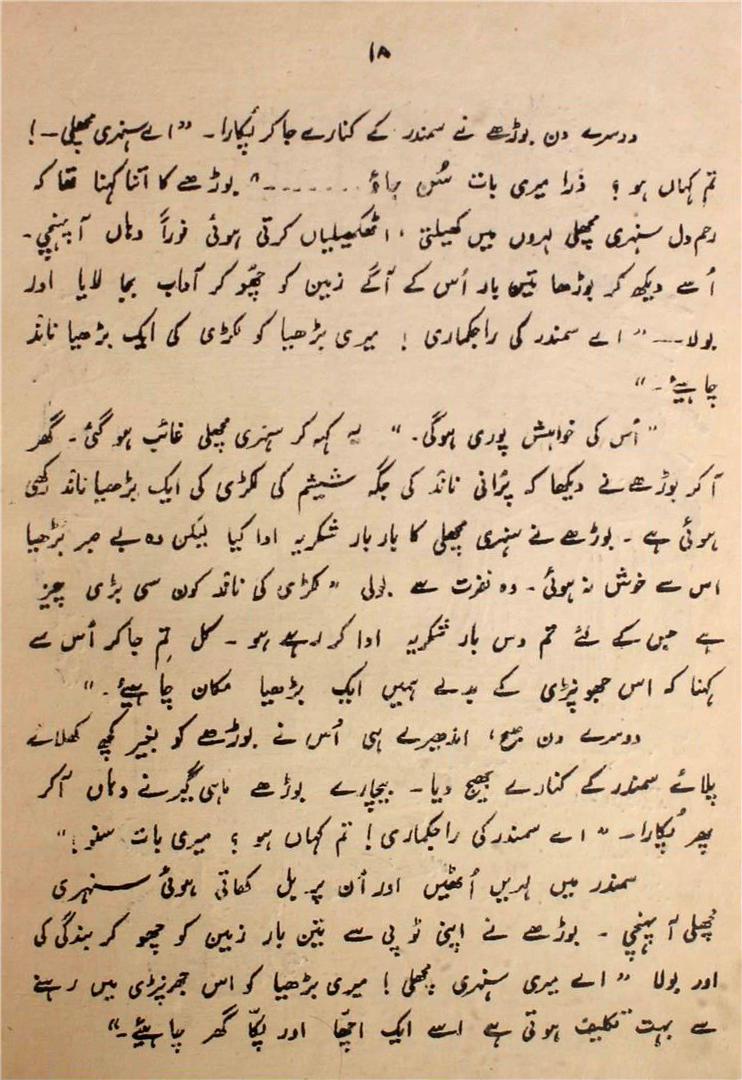 ۱۸
دوسرے دن بوڑھے نے سمندر کے کنارے جا کر پُکارا۔ "اے سنہری مچھلی۔!
تم کہاں ہو؟ ذرا میری بات سُن جاؤ ........" بوڑھے کا اتنا کہنا تھا کہ
رحم دل سنہری مچھلی لہروں میں کھیلتی، اٹھکھیلیاں کرتی ہوئی فوراً وہاں آ پہنچی۔
اُسے دیکھ کر بوڑھا تین بار اُس کے آگے زمین کو چھُو کر آداب بجا لایا اور
بولا۔۔۔ "اے سمندر کی راجکماری! میری بڑھیا کو لکڑی کی ایک بڑھیا ناند
چاہیئے۔"
"اُس کی خواہش پوری ہوگی۔" یہ کہہ کر سنہری مچھلی غائب ہو گئی۔ گھر
آ کر بوڑھے نے دیکھا کہ پُرانی ناند کی جگہ شیشم کی لکڑی کی ایک بڑھیا ناند رکھی
ہوئی ہے۔ بوڑھے نے سنہری مچھلی کا بار بار شکریہ ادا کیا لیکن وہ بے صبر بُڑھیا
اس سے خوش نہ ہوئی۔ وہ نفرت سے بولی "لکڑی کی ناند کون سی بڑی چیز
ہے جس کے لئے تم دس بار شکریہ ادا کر رہے ہو۔ کل تم جا کر اُس سے
کہنا کہ اس جھونپڑی کے بدلے ہمیں ایک بڑھیا مکان چاہیئے۔"
دوسرے دن صبح، اندھیرے ہی اُس نے بوڑھے کو بغیر کچھ کھلائے
پلائے سمندر کے کنارے بھیج دیا۔ بیچارے بوڑھے ماہی گیر نے وہاں آ کر
پھر پُکارا۔ "اے سمندر کی راجکماری! تم کہاں ہو؟ میری بات سنو!"
سمندر میں لہریں اُٹھیں اور اُن پر بل کھاتی ہوئی سنہری
مچھلی آ پہنچی۔ بوڑھے نے اپنی ٹوپی سے تین بار زمین کو چھو کر بندگی کی
اور بولا "اے میری سنہری مچھلی! میری بڑھیا کو اس جھونپڑی میں رہنے
سے بہت تکلیف ہوتی ہے اسے ایک اچھّا اور پکّا گھر چاہیئے۔"